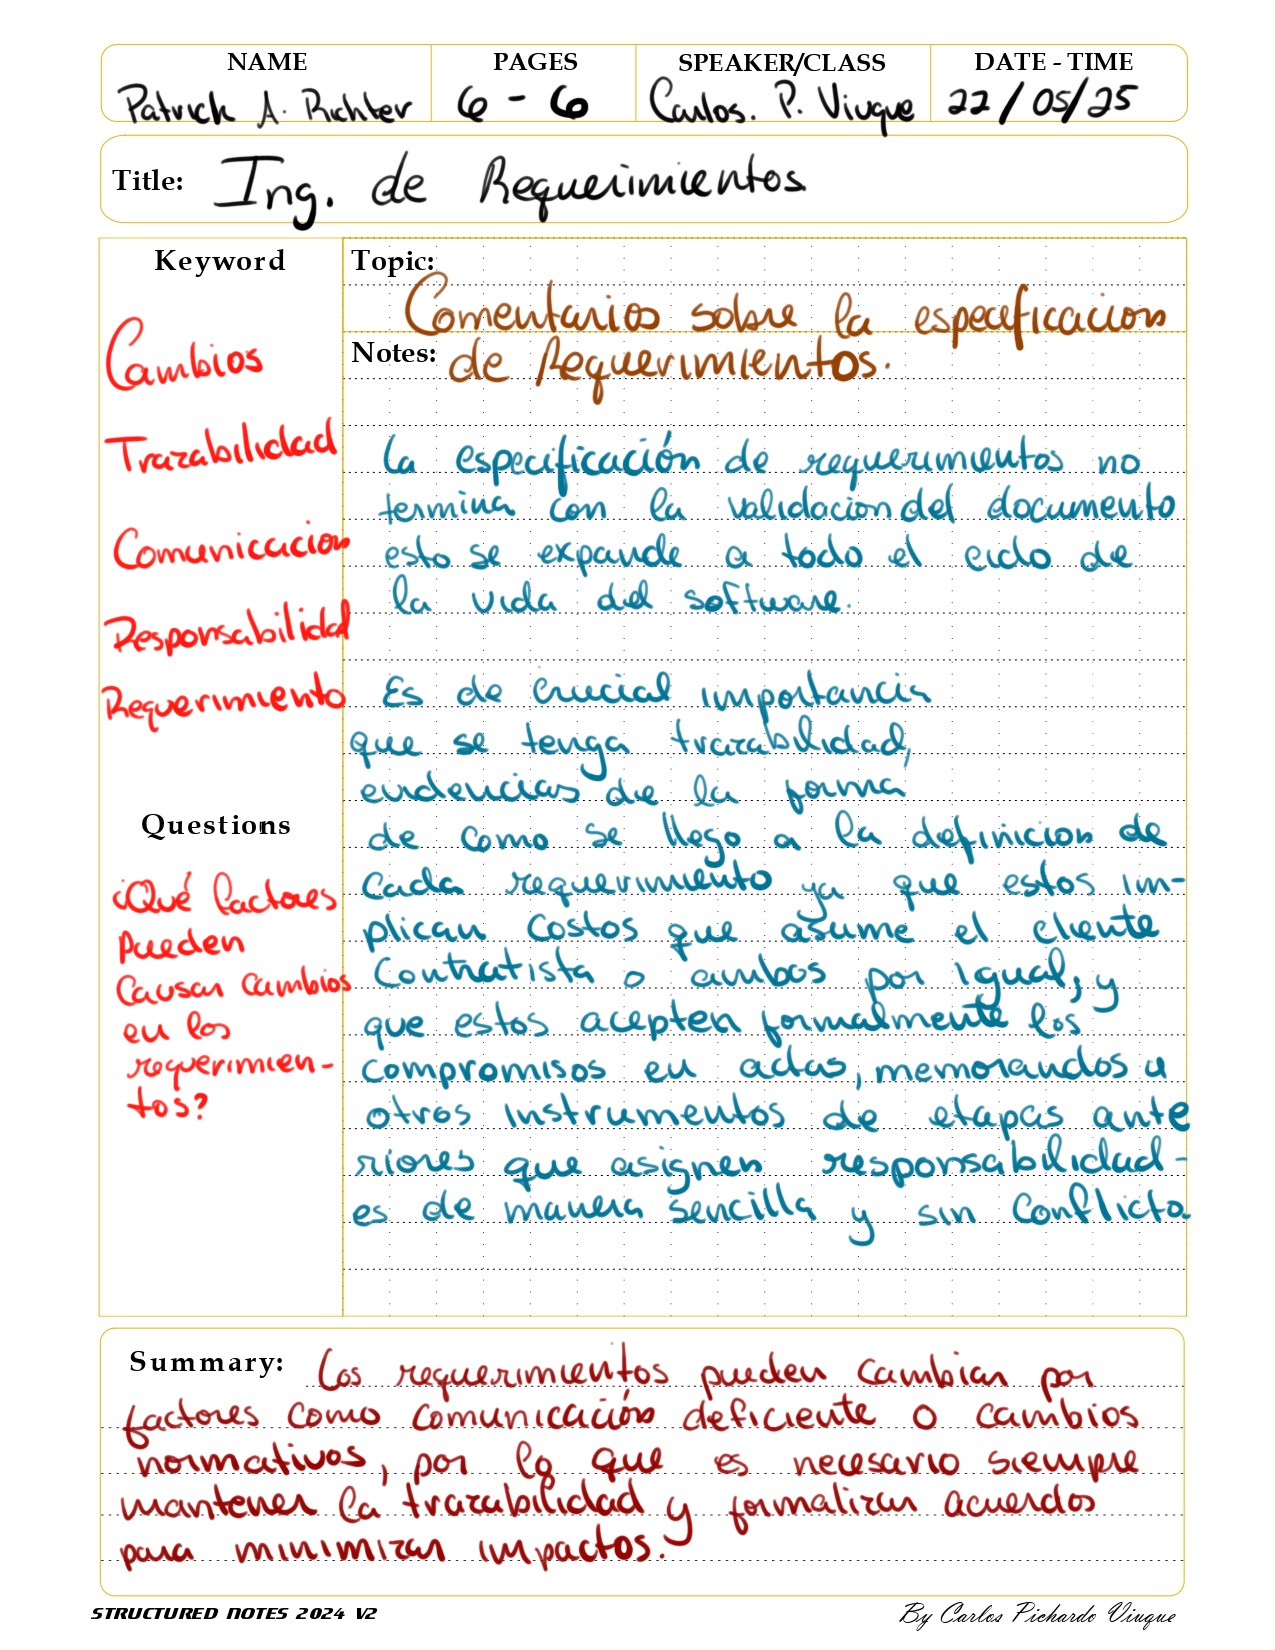 NAME PAGES SPEAKER/CLASS DATE - TIME
Patrick A. Richter 6 - 6 Carlos. P. Viuque 22/05/25
Title: Ing. de Requerimientos
Keyword
Cambios
Trazabilidad
Comunicacion
Responsabilidad
Requerimiento
Questions
¿Qué factores
pueden
causar cambios
en los
requerimien-
tos?
Topic:
Comentarios sobre la especificacion
Notes: de Requerimientos.
La especificación de requerimientos no
termina con la validacion del documento
esto se expande a todo el ciclo de
la vida del software.
Es de crucial importancia
que se tenga trazabilidad,
evidencias de la forma
de como se llego a la definicion de
cada requerimiento ya que estos im-
plican costos que asume el cliente
contratista o ambos por igual, y
que estos acepten formalmente los
compromisos en actas, memorandos u
otros instrumentos de etapas ante
riores que asignen responsabilidad-
es de manera sencilla y sin conflicto
Summary: Los requerimientos pueden cambiar por
factores como comunicación deficiente o cambios
normativos, por lo que es necesario siempre
mantener la trazabilidad y formalizar acuerdos
para minimizar impactos.
STRUCTURED NOTES 2024 V2 By Carlos Pichardo Viuque